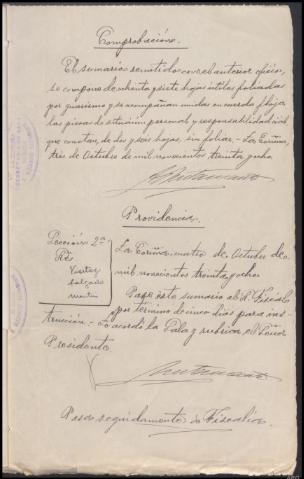 Comprobación.
El sumario remitido con el anterior oficio,
se compone de ochenta y siete hojas útiles foliadas
por guarismo y se acompañan unidas en cuerda floja
las piezas de situación personal y responsabilidad civil
que constan, de dos y seis hojas, sin foliar.- La Coruña,
tres de Octubre de mil novecientos treinta y ocho
Providencia
Sección 2ª
La Coruña, cuatro de Octubre de
mil novecientos treinta y ocho.
Pase este sumario al Sr. Fiscal
por término de cinco días para ins-
trucción.- Lo acordó la Sala y rubrica el Señor
Presidente
Pasa seguidamente a Fiscalía.